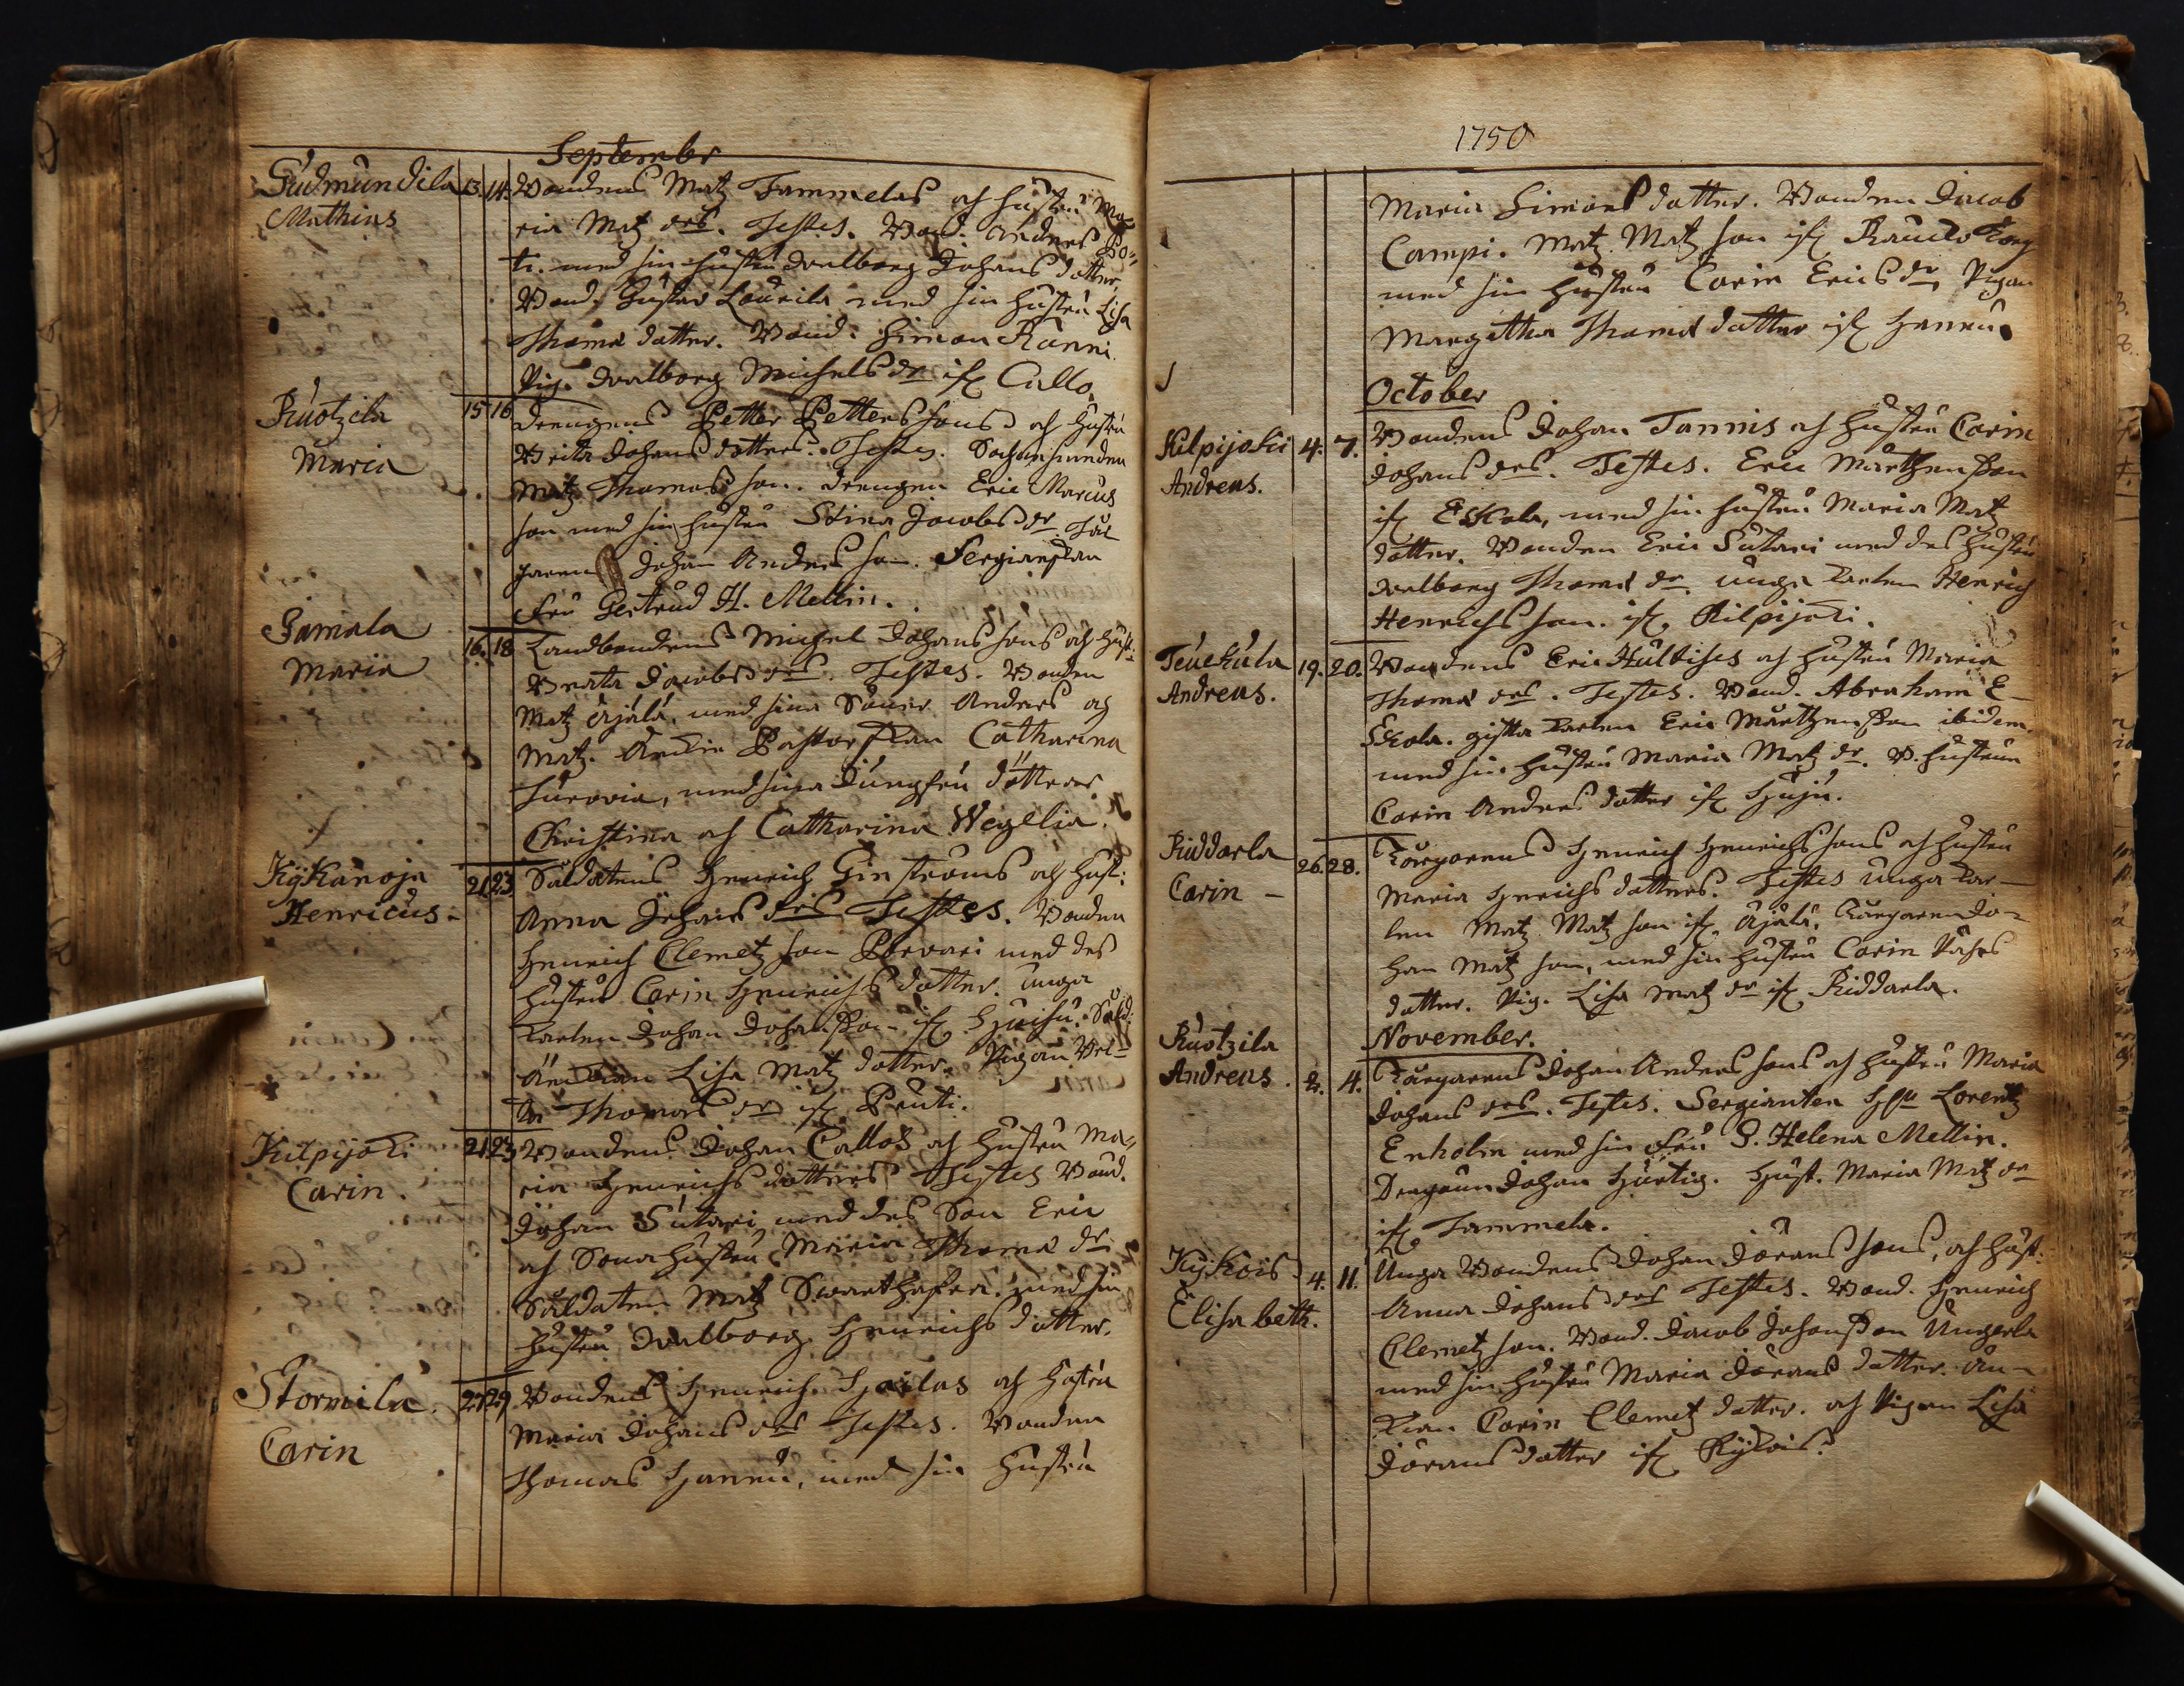 September
Gudmundila 13. 14. Bondens Matz Tammelas och hustrus Ma
Mathias
ria Matz drs. Testes. Bond. Anders Po-
ti. med sin hustru Walborg Johans dotter,
Bond. Gustav Laurila med sin hustru Lisa
Thomæ dotter. Bond. Simon Ranni.
Pig. Walborg Michels dr ifr. Callo.
Ruotzila 15 16 Drengens Petter Petters sons och hustru
Maria
Brita Johans dotters. Testes. Sochnesmeden
Matz Thomas son. Drengen Eric Marcus
son med sin hustru Stina Jacobs dr
Johan Anders son. Sergianskan
Fru Gertrud H. Mellin.
Jamala 16. 18 Landbondens Michel Johans sons och hust:
Maria
Beata Jacobs drs. Testes. Bonden
Matz Äjälä, med sina Söner Anders och
Matz. Änkie Pastorskan Catharina
med sina Jungfru döttrar
Christina och Catharina Wegelia.
Kykänoja 21 23 Soldatens Henrich Ginströms och hust:
Henricus
Anna Johans drs Testes. Bonden
Henrich Clemetz son Porvari med des
hustru Carin Henrichs dotter. unga
Karlen Johan Johansson ifr. Sold:
Änckian Lisa Matz dotter. Pigan
Thomas dr ifr. Penti.
Kilpijoki 21 23 Bondens Johan Callos och hustru Ma-
Carin.
ria Henrichs dotters Testes Bond.
Johan Sutari med des Son Eric
och Sona hustru Maria Thomæ dr.
Soldaten Matz Swarthafra. med sin
hustru Walborg Henrichs dotter.
Stormila. 27 29 Bondens Henrich Hjeilas och hustru
Carin
Maria Johans drs Testes. Bonden
Thomas Hannu, med sin hustru
1750
Maria Simons dotter. Bonden Jacob
Campi. Matz Matz son ifr
med sin hustru Carin Erics dr, Pigan
Margetha Thomæ dotter ifr Hannu.
October
Kilpijoki 4. 7. Bondens Johan Tannis och hustru Carin
Andreas.
Johans drs. Testes. Eric Mårthensson
ifr Eskola, med sin hustru Maria Matz
dotter. Bonden Eric Sutari med des hustru
Walborg Thomæ dr. unga Karlen Henrich
Henrichs son. ifr. Kilpijoki.
Teuckula 19. 20. Bondens Eric Hultises och hustru Maria
Andreas.
Thomæ drs. Testes. Bond. Abraham E-
skola. gifta Karlen Eric Mårthensson ibidem
med sin hustru Maria Matz dr. B. hustrun
Carin Anders dotter ifr Huju.
Riddarla 26. 28. Torparens Henrich Henrichs sons och hustru
Carin -
Maria Henrichs dotters. Testes unga Kar-
len Matz Matz son ifr. Äjälä. Torparen Jo-
han Matz son, med sin hustru Carin
dotter. Pig. Lisa Matz dr ifr Riddarla.
November.
Ruotzila
Andreas. 2. 4. Torparens Johan Anders sons och hustru Maria
Johans drs. Testes. Sergianten Hr Lorentz
Enholm med sin Fru S. Helena Mellin.
Dragoun Johan Hurtig. Hust. Maria Matz dr
ifr Tammela.
Kyköis 4. 11. Unga Bondens Johan Jörans sons, och hust.
Elisabeth.
Anna Johans drs Testes. Bond. Henrich
Clemetz son. Bond. Jacob Johansson Ungerla
med sin hustru Maria Jörans dotter. Än-
kian Carin Clemetz dotter. och Pigan Lisa
Jörans dotter ifr Kyköis.